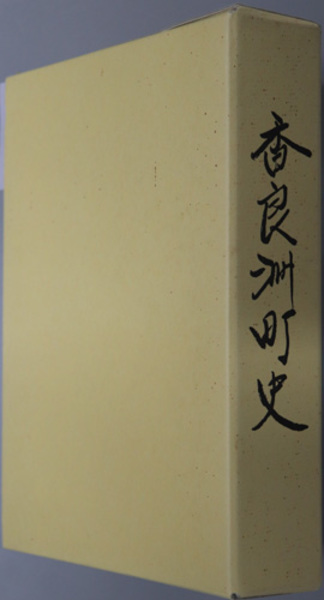 香良洲町史